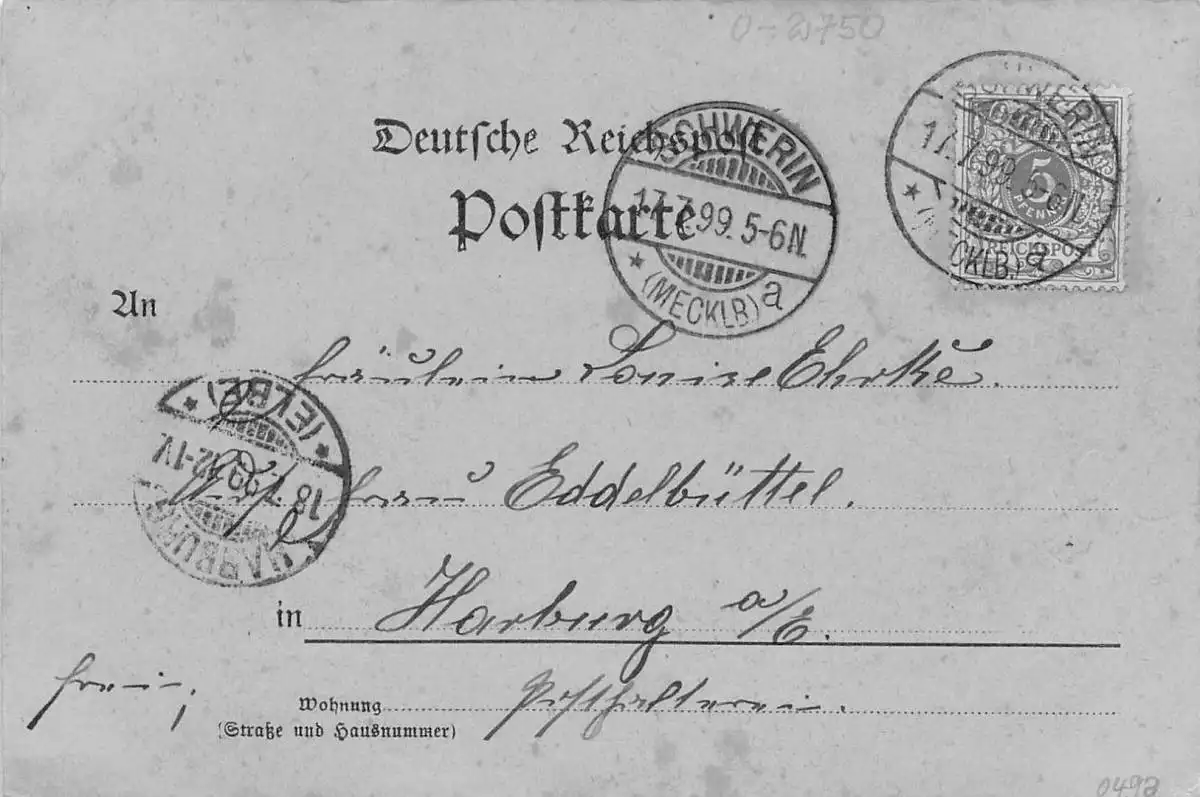 0-2750
Deutsche Reichspost
Postkarte
SCHWERIN
17.7.99. 5-6N.
* (MECKLB) a
SCHWERIN
17.7.99. 5-6N.
* (MECKLB.) a
5
PFENNIG
REICHSPOST
An
Fräulein Louise Ehrke.
* (ELBE) *
18 7.99. 12-1V
HARBURG
Frau Eddelbüttel.
in Harburg a/E.
frei;
Wohnung Posthalterei.
(Straße und Hausnummer)
049a